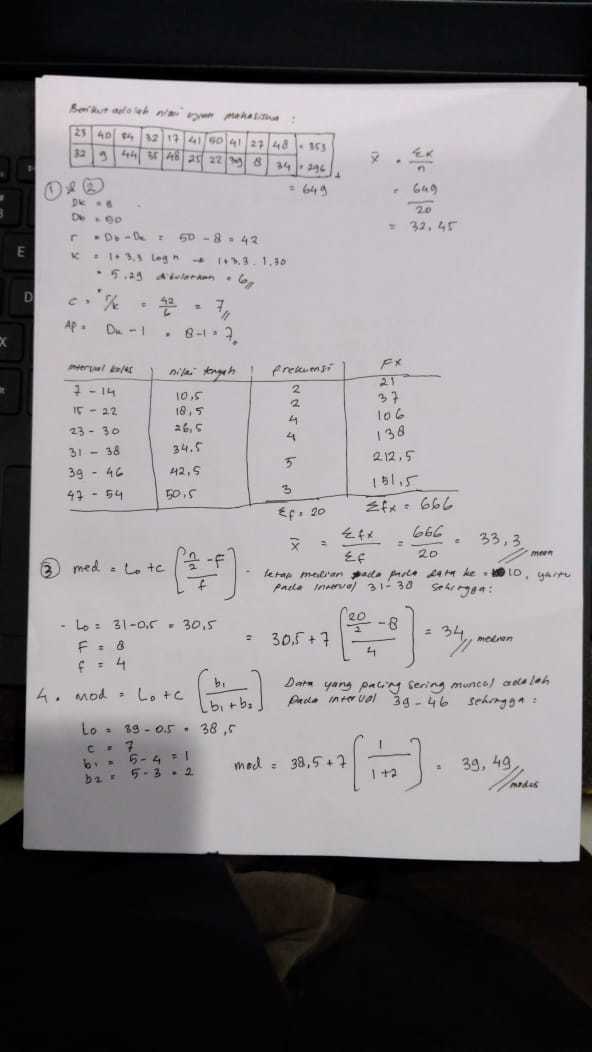 Berikut adalah nilai ujian mahasiswa :
23 40 34 32 17 41 50 41 27 48 = 353
32 9 44 35 48 25 22 39 8 34 = 296 +
= 649
x̄ = Σx/n
= 649/20
= 32,45
① & ②
Dk = 8
Db = 50
r = Db - Dk = 50 - 8 = 42
K = 1 + 3,3 log n → 1 + 3,3 . 1,30
= 5,29 dibulatkan = 6
c = r/k = 42/6 = 7
Ap = Dk - 1 = 8 - 1 = 7
interval kelas nilai tengah frekuensi Fx
7 - 14 10,5 2 21
15 - 22 18,5 2 37
23 - 30 26,5 4 106
31 - 38 34.5 4 138
39 - 46 42,5 5 212,5
47 - 54 50,5 3 151,5
Σf = 20 Σfx = 666
x̄ = Σfx/Σf = 666/20 = 33,3 mean
③ med = Lo + c [(n/2 - F)/f] - letak median pada data ke = 10, yaitu
pada interval 31-38 sehingga :
- Lo = 31-0,5 = 30,5
F = 8
f = 4
= 30,5 + 7 [(20/2 - 8)/4] = 34 median
4. mod = Lo + c [b1/(b1 + b2)] Data yang paling sering muncul adalah
pada interval 39 - 46 sehingga :
Lo = 39 - 0.5 = 38,5
c = 7
b1 = 5 - 4 = 1
b2 = 5 - 3 = 2
mod = 38,5 + 7 [1/(1+2)] = 39,49 modus